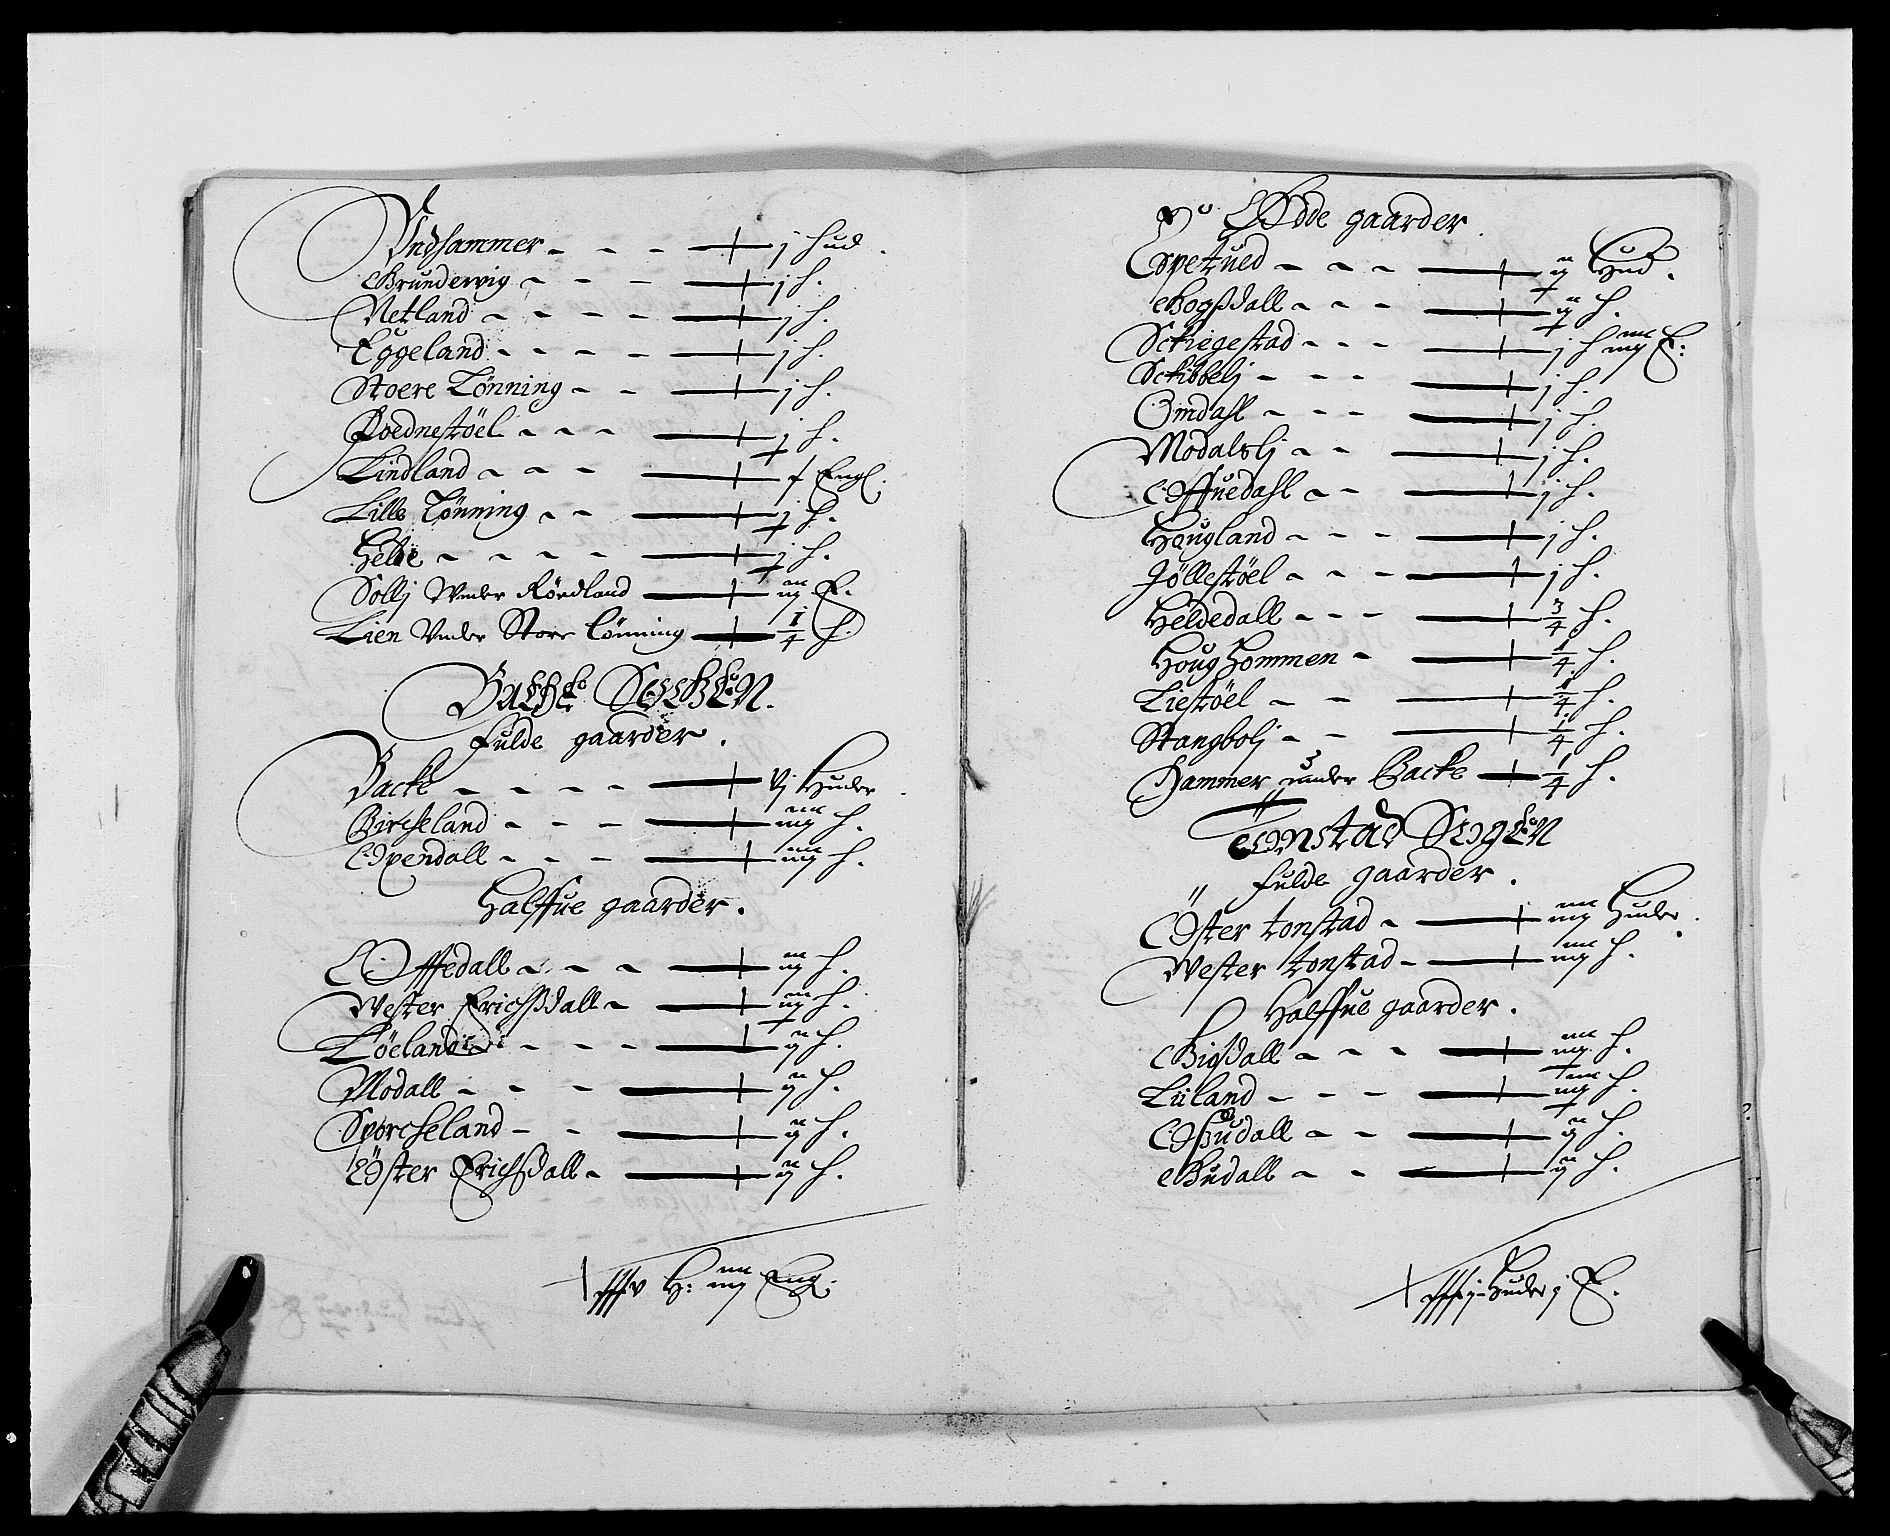 Undhammer - - - - j hud.
Grundevig - - - j h.
Netland - - - - - j h.
Eggeland - - - - - j h.
Stoere Tønning - - - j h.
Roednestöel - - - j h.
Lindland - - - Engl.
Lille Tønning - - j h.
Helle - - - - j h.
Sollj Under Rørdland iij E.
Lien Under Store Tønning 1/4 h.
BACHE SOCHEN.
Fulde gaarder.
Backe - - - - - vj Huder.
Bircheland - - - iiij h.
Opendall - - - iiij h.
Halffue gaarder.
Offedall - - - iij h.
Wester Erichßdall - iij h.
Löeland - - - - ij h.
Modall - - - ij h.
Sporcheland - - ij h.
Öster Erichßdall - ij h.
H: iiij Eng.
Øde gaarder.
Espetued - - - ij Hud.
Bogßdall - - - ij h.
Sckiegestad - - - j h iiij E:
Sckibbelj - - - j h.
Omdahl - - - j h.
Modalslj - - j h.
Offuedahl - - j h.
Hougland - - - j h.
Jöllestöel - - - j h.
Heldedall - - - 3/4 h.
Houghommen - 1/4 h.
Liestöel - - 1/4 h.
Stangbolj - - 1/4 h.
Hammer under Backe 1/4 h.
TONSTAD SOGEN
Fulde gaarder.
Öster tonstad - iiij Huder.
Wester tonstad - iiij h.
Halffue gaarder.
Bigdall - - - iiij h.
Liland - - - iiij h.
Oßudall - - ij h.
Gudall - - ij h.
Huder j E.